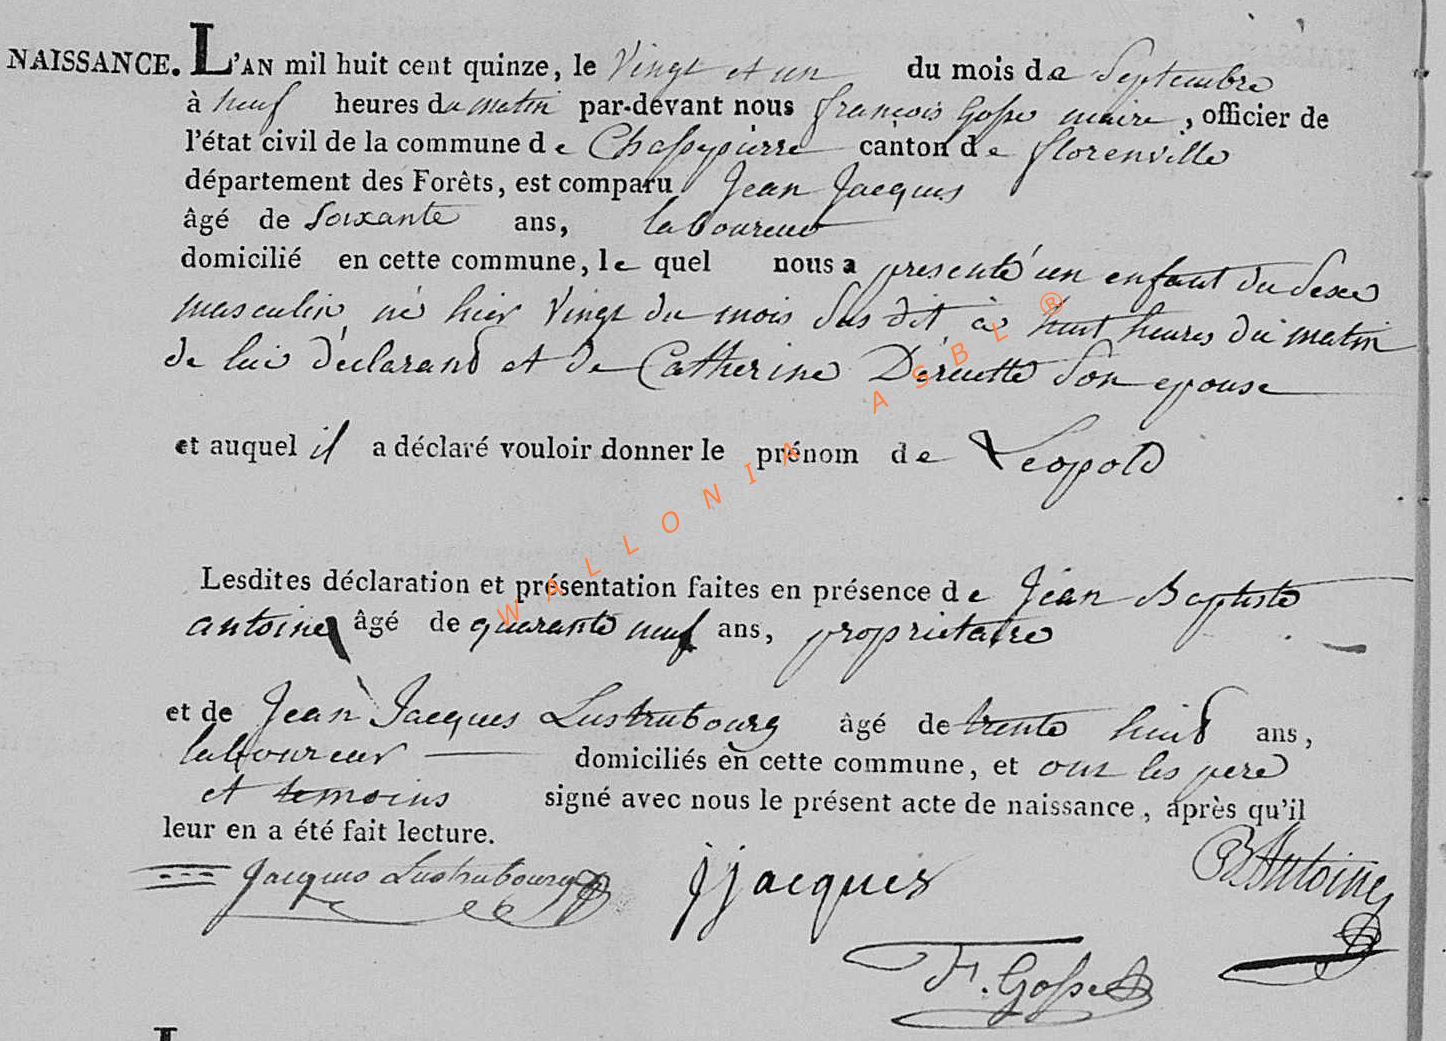 NAISSANCE. L'AN mil huit cent quinze, le Vingt et un du mois de Septembre
à neuf heures du matin par-devant nous françois Gosse maire, officier de
l'état civil de la commune de Chassepierre canton de florenville
département des Forêts, est comparu Jean Jacques
âgé de Soixante ans, laboureur
domicilié en cette commune, le quel nous a presenté un enfant du Sexe
masculin, né hier Vingt du mois Sus dit à huit heures du matin
de lui déclarand et de Catherine son epouse
et auquel il a déclaré vouloir donner le prénom de Leopold
Lesdites déclaration et présentation faites en présence de Jean Baptiste
antoine âgé de quarante neuf ans, propriétaire
et de Jean Jacques Lustrubourg âgé de trente huit ans,
laboureur domiciliés en cette commune, et ont les pere
et temoins signé avec nous le présent acte de naissance, après qu'il
leur en a été fait lecture.
Jacques Lustrubourg JJacques B Antoine
F. Gosse
WALLONIA ASBL ®